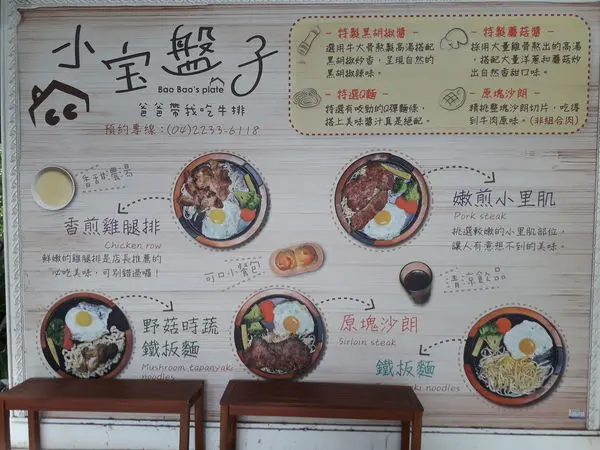 小宝盤子
Bao Bao's plate
爸爸帶我吃牛排
預約專線：(04)2233-6118
- 特製黑胡椒醬 -
選用牛大骨熬製高湯搭配
黑胡椒粉香，呈現自然的
黑胡椒辣味。
- 特製蘑菇醬 -
採用大量雞骨熬出的高湯
，搭配大量洋蔥和蘑菇炒
出自然香甜口味。
- 特選Q麵 -
特選有咬勁的Q彈麵條，
搭上美味醬汁真是絕配。
- 原塊沙朗 -
精挑整塊沙朗切片，吃得
到牛肉原味。(非組合肉)
香甜濃湯
香煎雞腿排
Chicken row
鮮嫩的雞腿排是店長推薦的
必吃美味，可別錯過囉！
嫩煎小里肌
Pork steak
挑選較嫩的小里肌部位，
讓人有意想不到的美味。
可口小餐包
清涼飲品
野菇時蔬
鐵板麵
Mushroom tapanyaki
noodles
原塊沙朗
Sirloin steak
鐵板麵
noodles